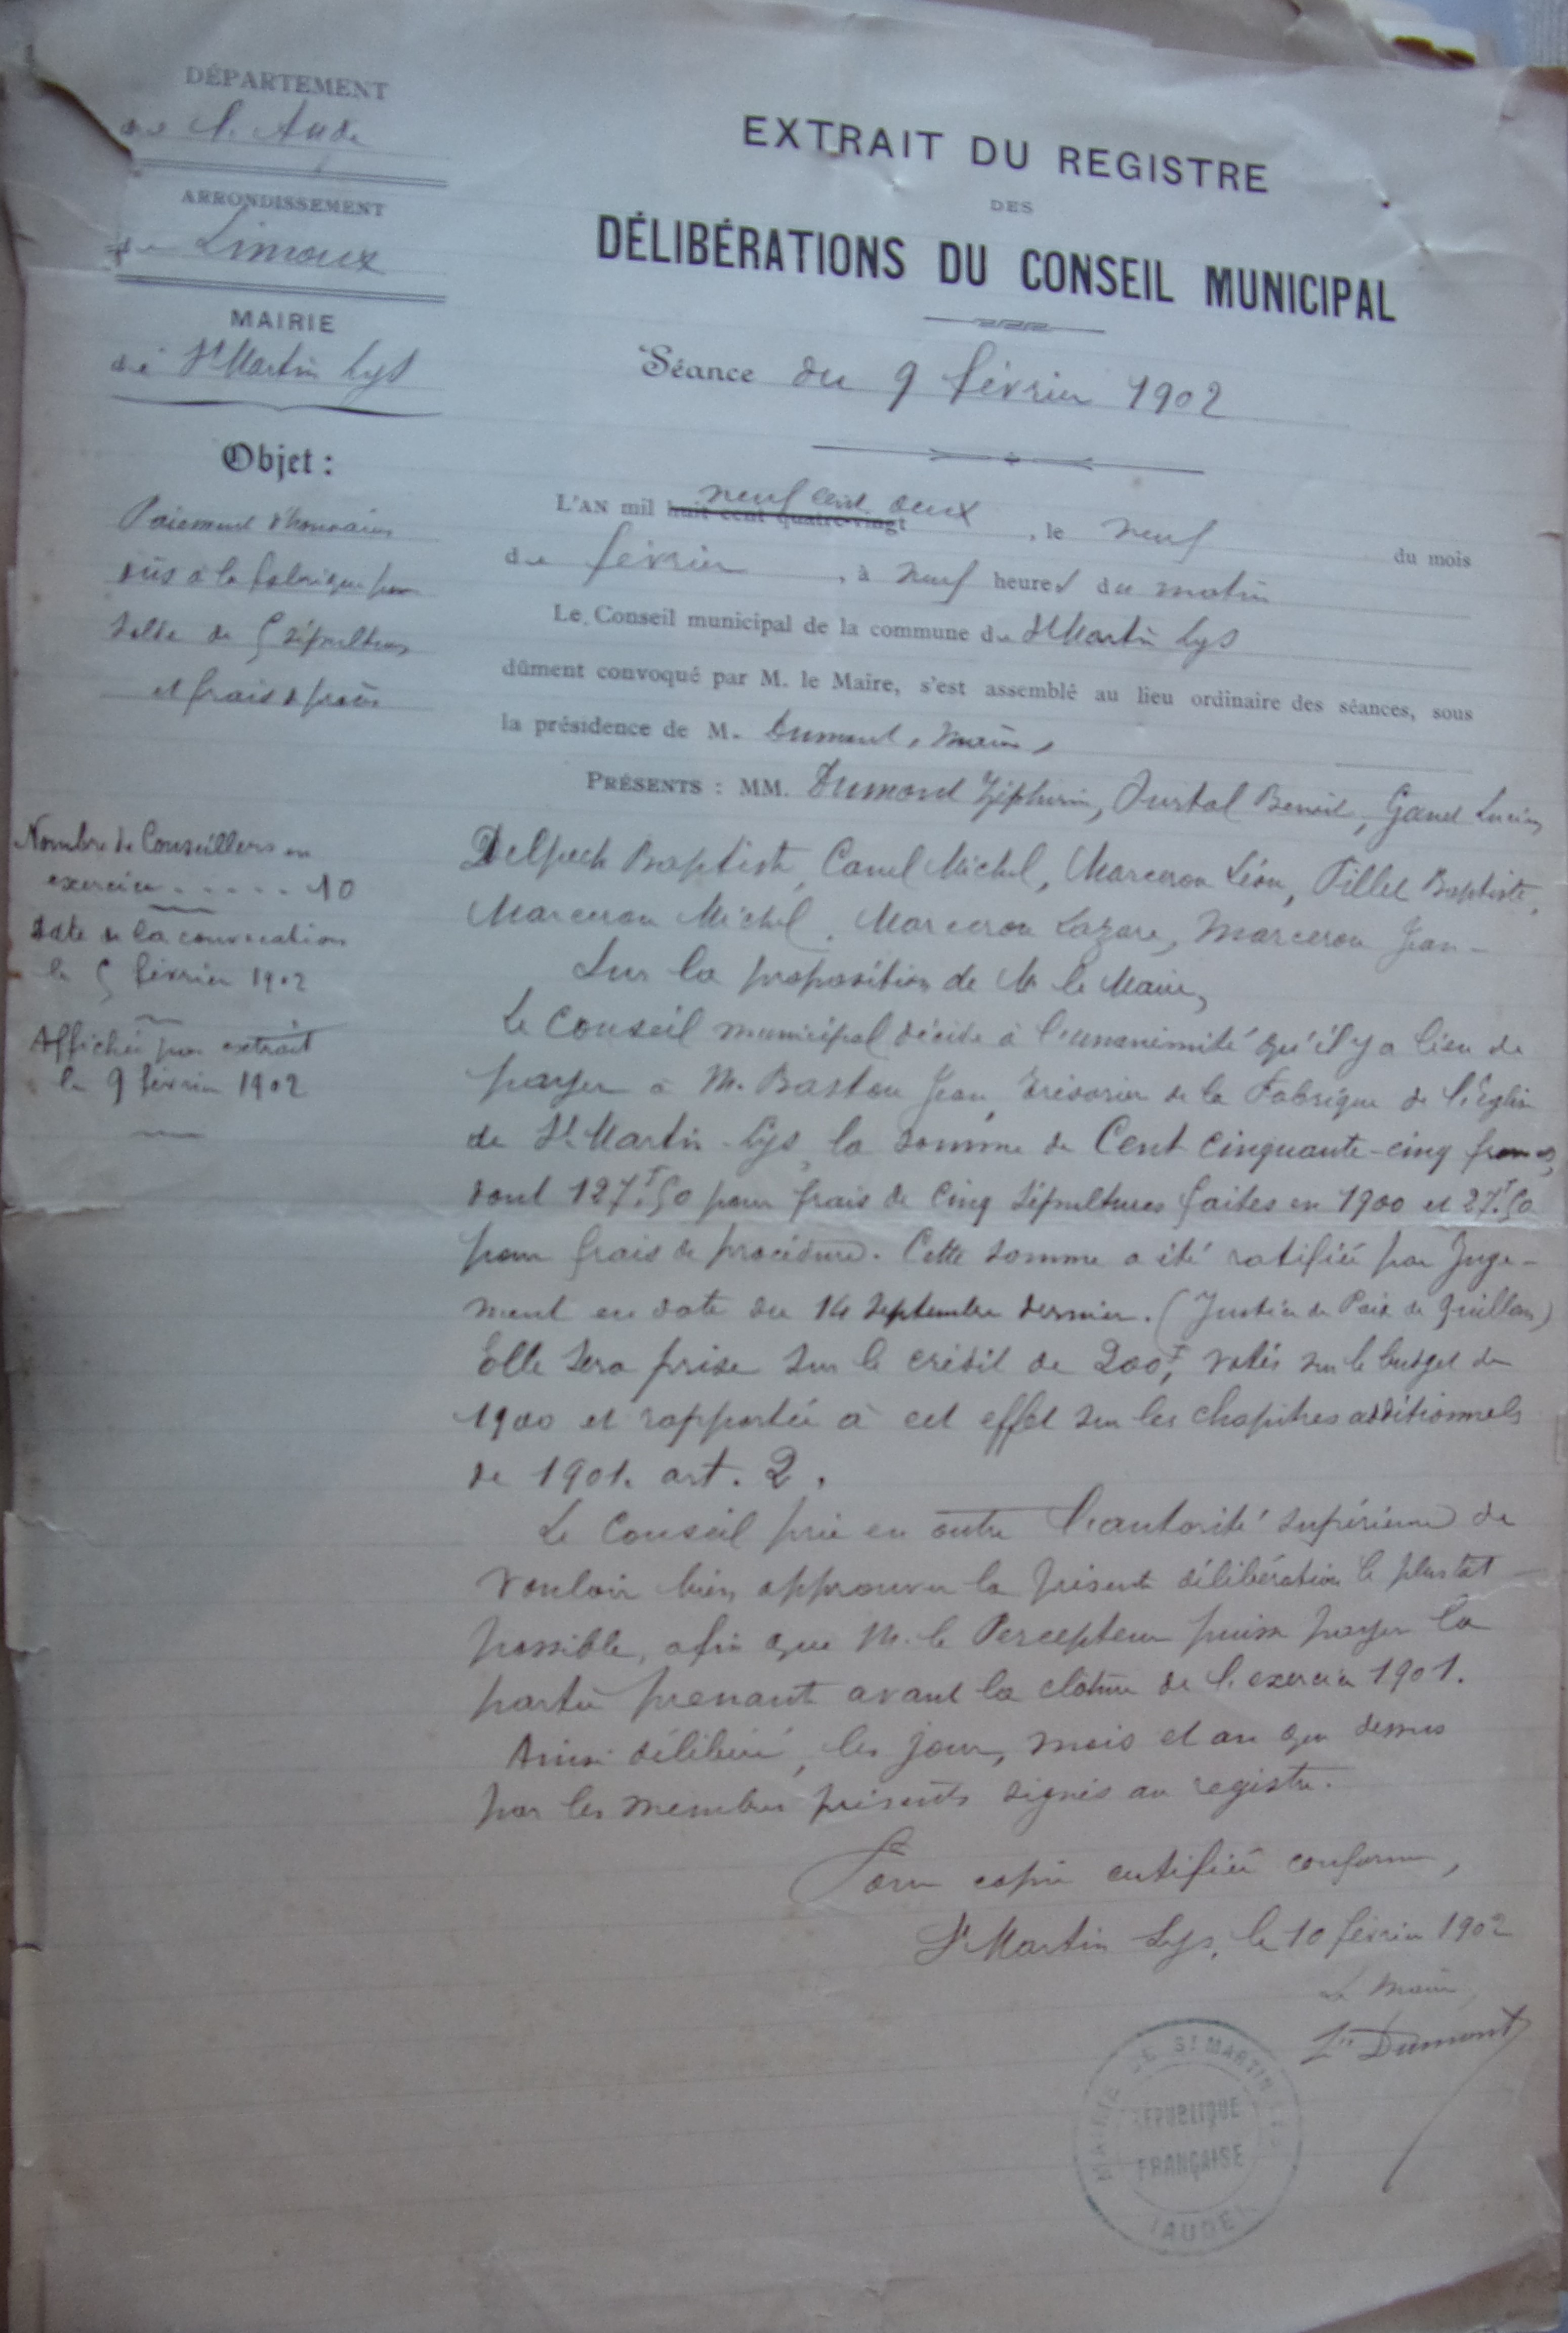 DÉPARTEMENT
de l'Aude
ARRONDISSEMENT
de Limoux
MAIRIE
de St Martin Lys
Objet :
Paiement d'honoraires
dûs à la fabrique pour
solde de 5 sépultures
et frais de procès
Nombre de Conseillers en
exercice . . . . . 10
Date de la convocation
le 5 février 1902
Affichée par extrait
le 9 février 1902
EXTRAIT DU REGISTRE
DES
DÉLIBÉRATIONS DU CONSEIL MUNICIPAL
Séance du 9 février 1902
neuf cent deux
L'AN mil huit cent quatre-vingt , le neuf du mois
de février , à neuf heures du matin
Le Conseil municipal de la commune de St Martin Lys
dûment convoqué par M. le Maire, s'est assemblé au lieu ordinaire des séances, sous
la présidence de M. Dumont, maire,
PRÉSENTS : MM. Dumont Zéphirin, Benoit, Lucien
Delpech Baptiste, Canel Michel, Marceron Léon, Pillet Baptiste,
Marceron Michel, Marceron Lazare, Marceron Jean-
Sur la proposition de M. le Maire,
Le Conseil municipal décide à l'unanimité qu'il y a lieu de
payer à M. Bastou Jean, trésorier de la Fabrique de l'Église
de St Martin-Lys, la somme de Cent cinquante-cinq francs,
dont 127f.50 pour frais de cinq sépultures faites en 1900 et 27f.50
pour frais de procédure. Cette somme a été ratifiée par Juge-
ment en date du 14 septembre dernier. (Justice de Paix de Quillan)
Elle sera prise sur le crédit de 200f, votés sur le budget de
1900 et rapportée à cet effet sur les chapitres additionnels
de 1901. art. 2.
Le Conseil prie en outre l'autorité supérieure de
vouloir bien approuver la présente délibération le plus tôt
possible, afin que M. le Percepteur puisse payer la
partie prenante avant la clôture de l'exercice 1901.
Ainsi délibéré, les jour, mois et an que dessus
par les membres présents signés au registre.
Pour copie certifiée conforme,
St Martin Lys, le 10 février 1902
Le Maire,
Zin Dumont
MAIRIE DE ST MARTIN LYS
RÉPUBLIQUE
FRANÇAISE
(AUDE)